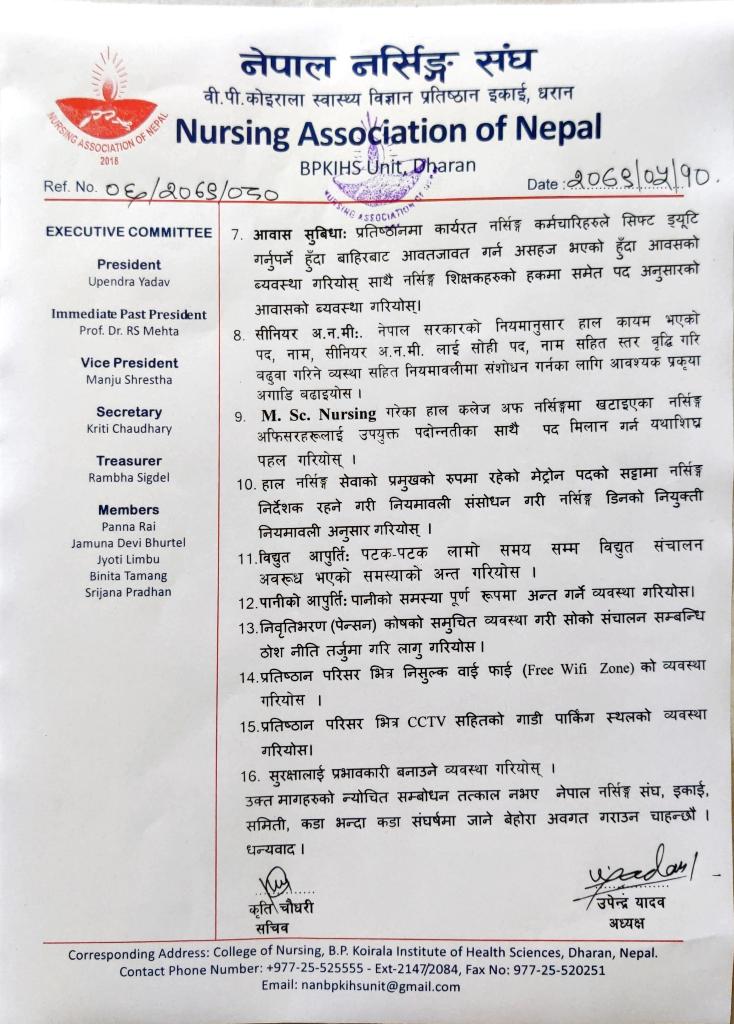 नेपाल नर्सिङ्ग संघ
वी.पी.कोइराला स्वास्थ्य विज्ञान प्रतिष्ठान इकाई, धरान
Nursing Association of Nepal
BPKIHS Unit, Dharan
NURSING ASSOCIATION OF NEPAL
2018
NURSING ASSOCIATION OF
Ref. No.
Date : २०७९/०५/१०.
EXECUTIVE COMMITTEE
President
Upendra Yadav
Immediate Past President
Prof. Dr. RS Mehta
Vice President
Manju Shrestha
Secretary
Kriti Chaudhary
Treasurer
Rambha Sigdel
Members
Panna Rai
Jamuna Devi Bhurtel
Jyoti Limbu
Binita Tamang
Srijana Pradhan
7. आवास सुबिधा: प्रतिष्ठानमा कार्यरत नर्सिङ्ग कर्मचारिहरुले सिफ्ट ड्यूटि
गर्नुपर्ने हुँदा बाहिरबाट आवतजावत गर्न असहज भएको हुँदा आवसको
ब्यवस्था गरियोस् साथै नर्सिङ्ग शिक्षकहरुको हकमा समेत पद अनुसारको
आवासको ब्यवस्था गरियोस्।
8. सीनियर अ.न.मी:. नेपाल सरकारको नियमानुसार हाल कायम भएको
पद, नाम, सीनियर अ.न.मी. लाई सोही पद, नाम सहित स्तर वृद्धि गरि
बढुवा गरिने व्यस्था सहित नियमावलीमा संशोधन गर्नका लागि आवश्यक प्रकृया
अगाडि बढाइयोस ।
9. M. Sc. Nursing गरेका हाल कलेज अफ नर्सिङ्गमा खटाइएका नर्सिङ्ग
अफिसरहरूलाई उपयुक्त पदोन्नतीका साथै पद मिलान गर्न यथाशिघ्र
पहल गरियोस् ।
10. हाल नर्सिङ्ग सेवाको प्रमुखको रुपमा रहेको मेट्रोन पदको सट्टामा नर्सिङ्ग
निर्देशक रहने गरी नियमावली संसोधन गरी नर्सिङ्ग डिनको नियुक्ती
नियमावली अनुसार गरियोस् ।
11. विद्युत आपुर्ति: पटक-पटक लामो समय सम्म विद्युत संचालन
अवरूध भएको समस्याको अन्त गरियोस ।
12. पानीको आपुर्ति: पानीको समस्या पूर्ण रूपमा अन्त गर्ने व्यवस्था गरियोस।
13. निवृतिभरण (पेन्सन) कोषको समुचित व्यवस्था गरी सोको संचालन सम्बन्धि
ठोश नीति तर्जुमा गरि लागु गरियोस ।
14. प्रतिष्ठान परिसर भित्र निसुल्क वाई फाई (Free Wifi Zone) को व्यवस्था
गरियोस ।
15. प्रतिष्ठान परिसर भित्र CCTV सहितको गाडी पार्किंग स्थलको व्यवस्था
गरियोस।
16. सुरक्षालाई प्रभावकारी बनाउने व्यवस्था गरियोस् ।
उक्त मागहरुको न्योचित सम्बोधन तत्काल नभए नेपाल नर्सिङ्ग संघ, इकाई,
समिती, कडा भन्दा कडा संघर्षमा जाने बेहोरा अवगत गराउन चाहन्छौ ।
धन्यवाद ।
कृति चौधरी
सचिव
उपेन्द्र यादव
अध्यक्ष
Corresponding Address: College of Nursing, B.P. Koirala Institute of Health Sciences, Dharan, Nepal.
Contact Phone Number: +977-25-525555 - Ext-2147/2084, Fax No: 977-25-520251
Email: nanbpkihsunit@gmail.com